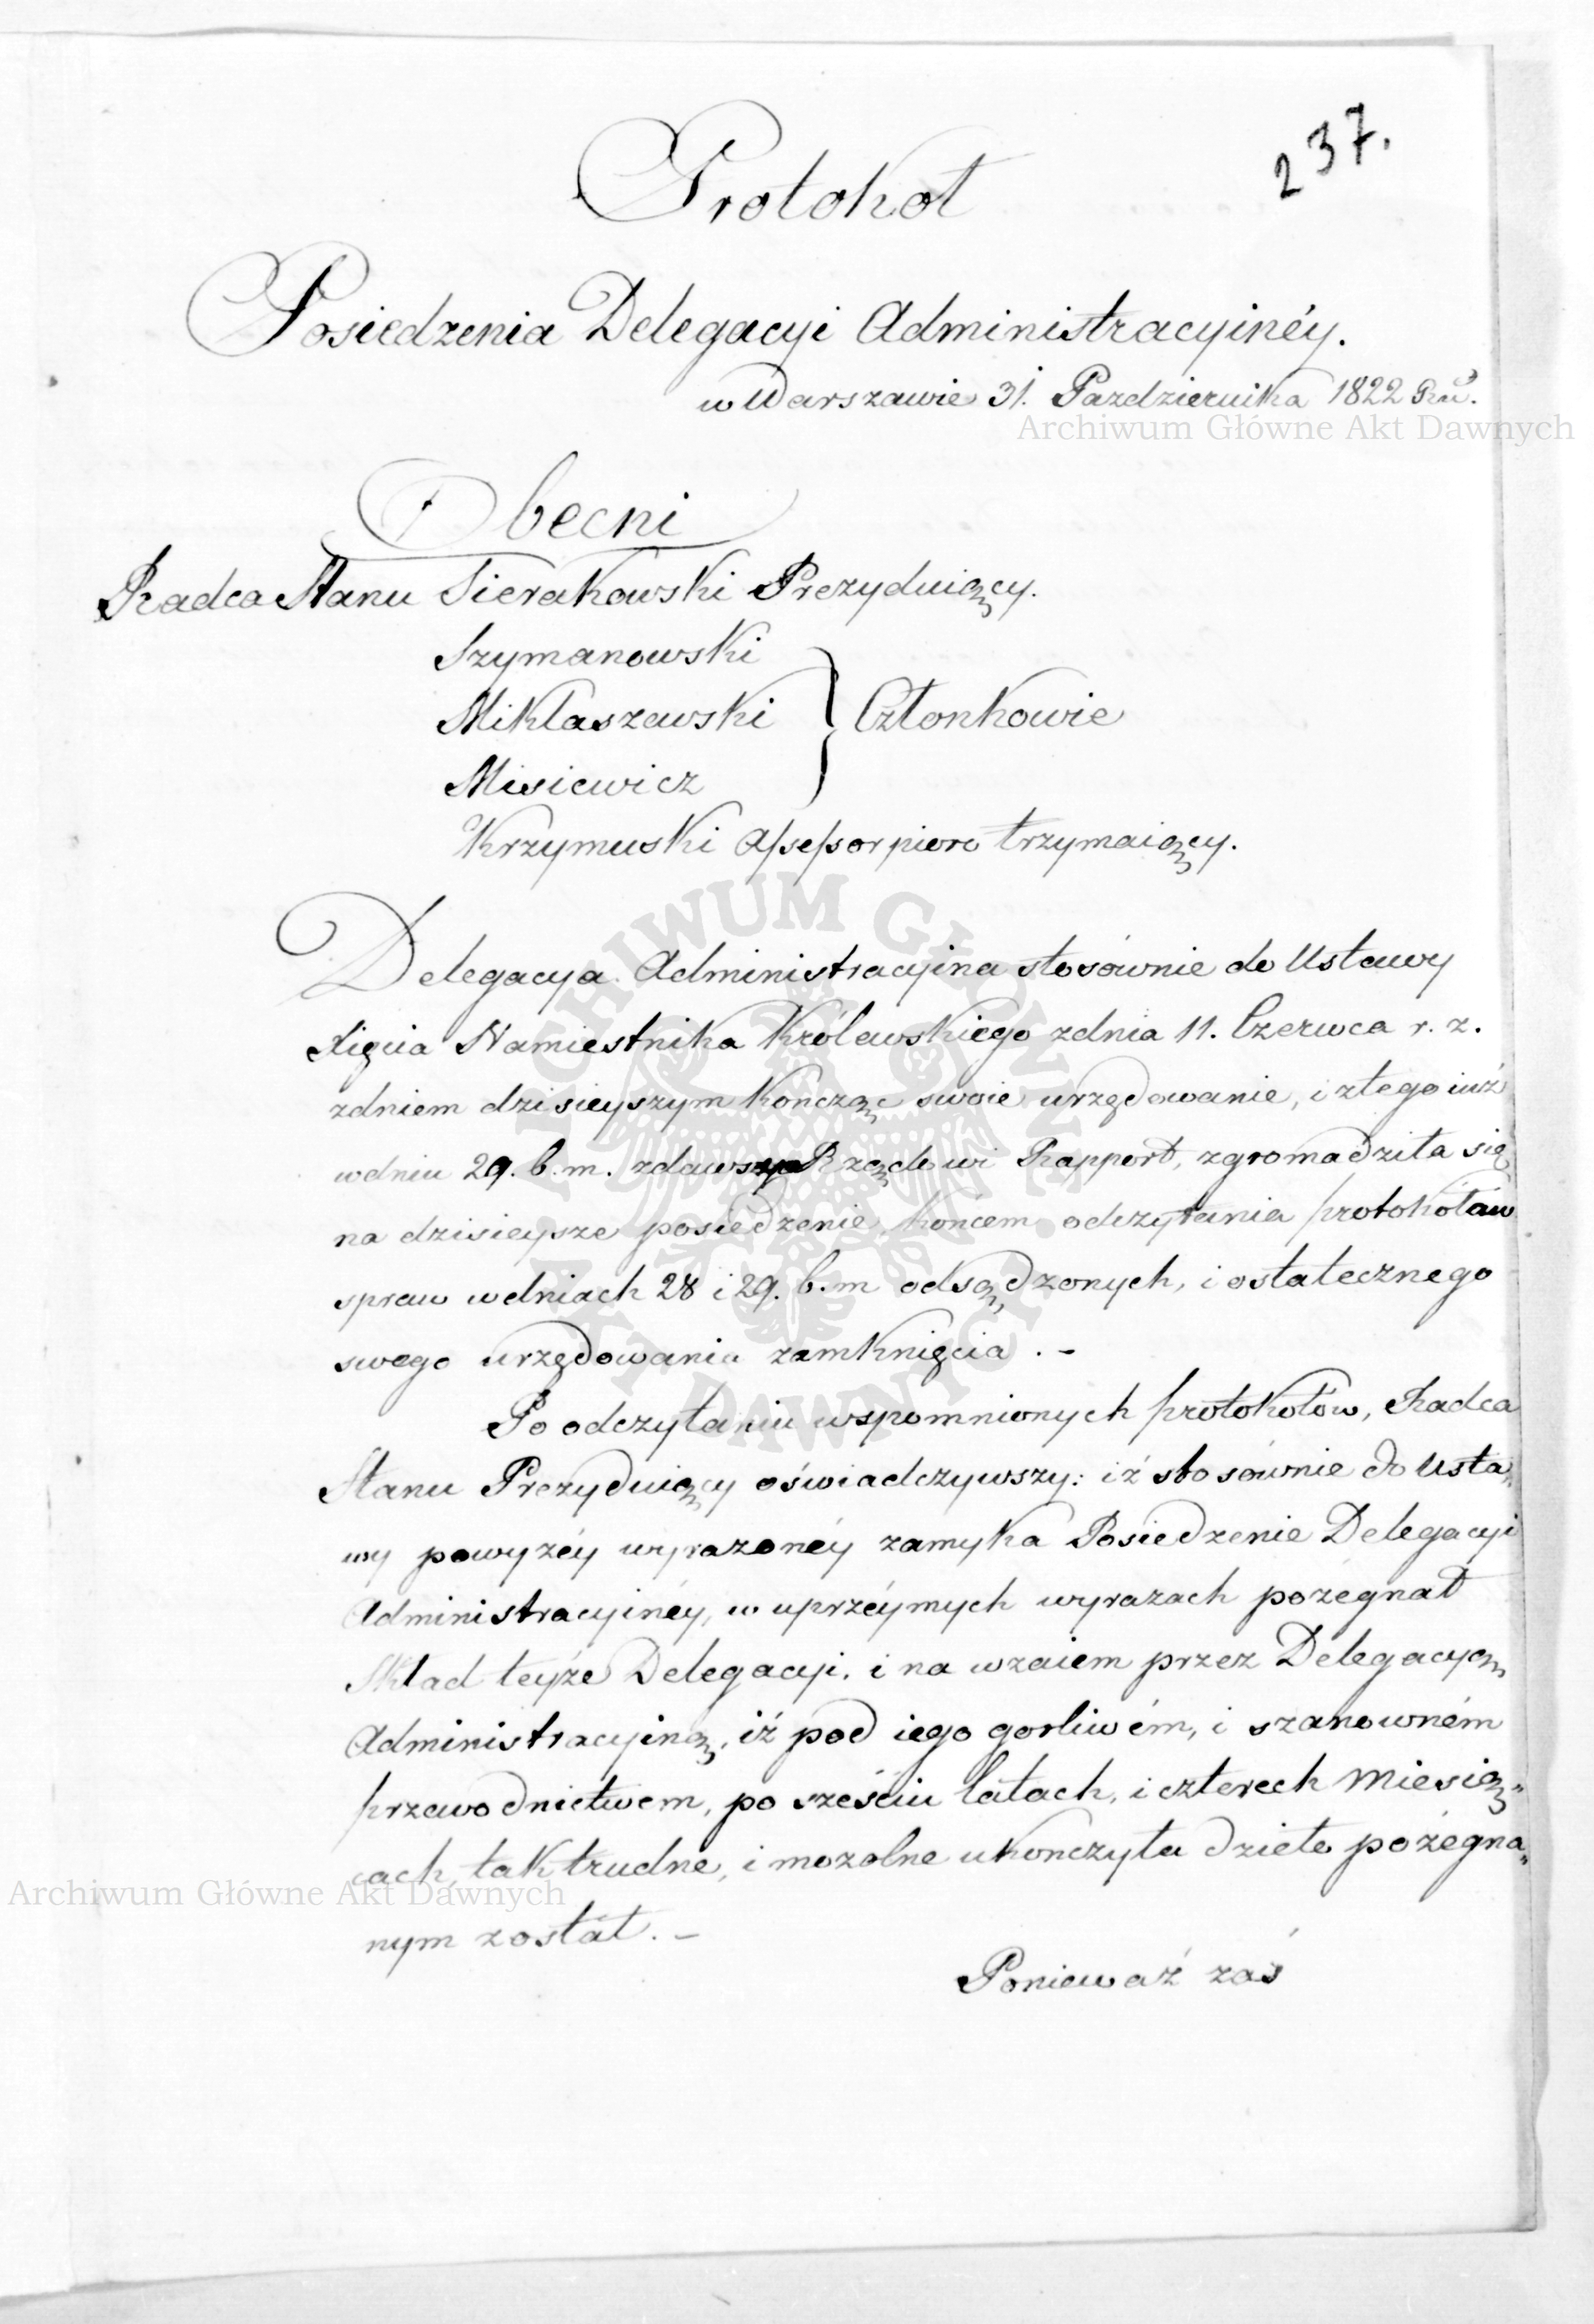 237.
Protokoł
Posiedzenia Delegacyi Administracyinéy.
w Warszawie 31. Pazdziernika 1822 Rku.
Archiwum Główne Akt Dawnych
Obecni
Radca Stanu Sierakowski Prezyduiący.
Szymanowski
Miklaszewski } Członkowie
Misiewicz
Krzymuski Assessor pioro trzymaiący.
ARCHIWUM GŁÓWNE AKT DAWNYCH
Delegacya Administracyina stosównie do Ustawy
Xięcia Namiestnika Królewskiego z dnia 11. Czerwca r. z.
z dniem dzisieyszym kończąc swoie urzędowanie, i z tego iuż
w dniu 29. b. m. zdawszy Rządowi Rapport, zgromadziła się
na dzisieysze posiedzenie, końcem odczytania protokołów
spraw w dniach 28 i 29. b. m odsądzonych, i ostatecznego
swego urzędowania zamknięcia. -
Po odczytaniu wspomnionych protokołów, Radca
Stanu Prezyduiący oświadczywszy: iż stosównie do Usta„
wy powyżéy wyrazonéy zamyka Posiedzenie Delegacyi
Administracyinéy, w uprzéymych wyrazach pożegnał
Skład teyże Delegacyi, i na wzaiem przez Delegacyą
Administracyiną, iż pod iego gorliwém, i szanowném
przewodnictwem, po sześciu latach, i czterech Miesią„
cach, tak trudne, i mozolne ukonczyła dzieło pożegna„
Archiwum Główne Akt Dawnych
nym został. -
Ponieważ zaś